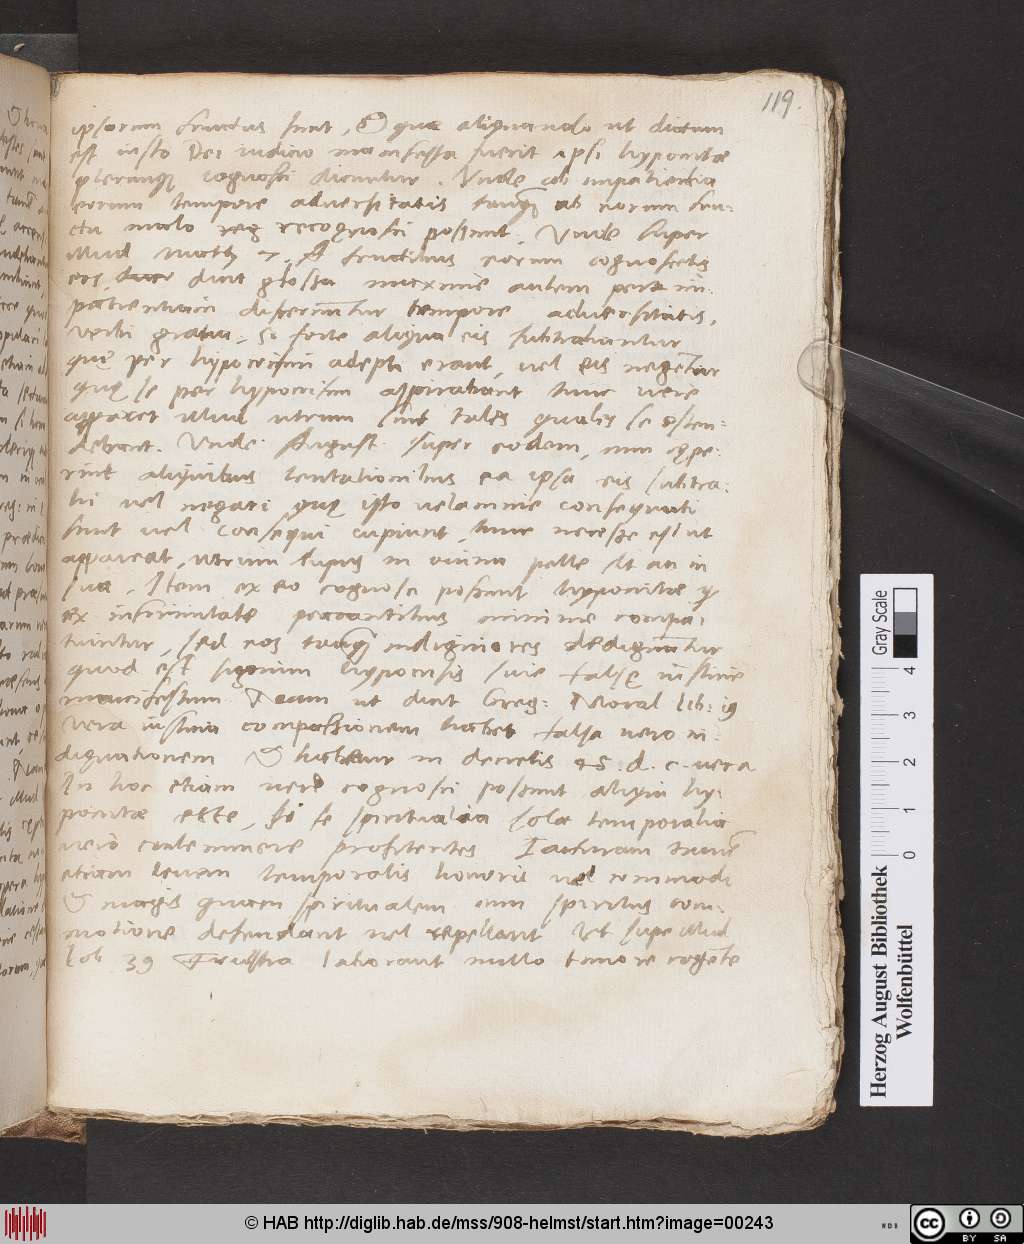 119.
ipsorum fructus sunt, & qua aliquando ut dictum
est iusto Dei iudicio manifesta fuerit ipsi hypocritæ
plerunq; cognosci dicuntur. Unde ob impatientia
eorum tempore adversitatis tanq; ab eorum fru-
ctu malo recognosci possunt. Unde super
illud Matth 7. A fructibus eorum cognoscetis
eos, dicit glossa maxime autem per im-
patientiam discernuntur tempore adversitatis,
verbi gratia: Si forte aliqua eis subtrahuntur
quę per hypocrisim adepti erant, vel eis negentur
quę se per hypocrisim aspirabant tunc vere
apparet illud utrum sint tales qualis se osten-
debant. Unde August: super eodem, cum cępe-
rint aliquibus tentationibus ea ipsa eis subtra-
hi vel negari quę isto velamine consequuti
sunt vel consequi cupiunt, tunc necesse est ut
appareat, utrum lupus in ovina pelle sit an in
sua. Item ex eo cognosci possunt hypocritæ q
ex infirmitate peccantibus minime compa-
tiuntur, sed eos tanq indigniores dedignantur
quod est signum hypocrisis sive falsę iustitie
manifestum Nam ut dicit Greg: Moral lib: 19
Vera iustitia compassionem habet falsa vero in-
dignationem & habetur in decretis 45. d. c. vera
In hoc etiam vere cognosci possunt aliqui hy-
pocritæ esse, si se spiritualia sola temporalia
vero contemnere profitentes Iacturam tamē
etiam levem temporalis honoris vel commodi
& magis quam spiritualem cum spiritus com-
motione defendant vel repellant Ut supe illud
Iob 39 Frustra laborant nullo timore cogente
Gray Scale
0 1 2 3 4
Herzog August Bibliothek
Wolfenbüttel
© HAB http://diglib.hab.de/mss/908-helmst/start.htm?image=00243
WDB
cc BY SA